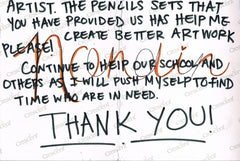 ARTIST. THE PENCILS SETS THAT
YOU HAVE PROVIDED US HAS HELP ME
CREATE BETTER ARTWORK
PLEASE!
CONTINUE TO HELP OUR SCHOOL AND
OTHERS AS I WILL PUSH MYSELF TO FIND
TIME WHO ARE IN NEED.
THANK YOU!